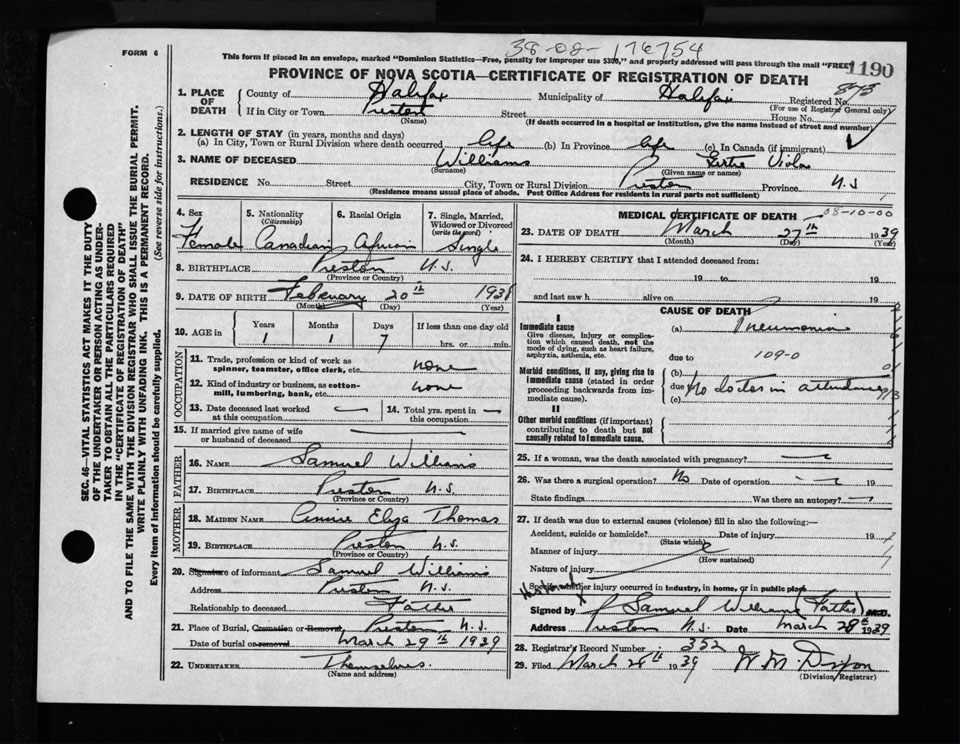 38-08- 176754
FORM 6
This form if placed in an envelope, marked "Dominion Statistics—Free, penalty for improper use $300," and properly addressed will pass through the mail "FREE"
1190
PROVINCE OF NOVA SCOTIA—CERTIFICATE OF REGISTRATION OF DEATH
1. PLACE OF DEATH
County of Halifax Municipality of Halifax Registered No.
(For use of Registrar General only)
If in City or Town Preston Street House No.
(Name) (If death occurred in a hospital or institution, give the name instead of street and number)
2. LENGTH OF STAY (in years, months and days)
(a) In City, Town or Rural Division where death occurred life (b) In Province life (c) In Canada (if immigrant)
3. NAME OF DECEASED Williams Viola
(Surname) (Given name or names)
RESIDENCE No. Street City, Town or Rural Division Preston Province N.S
(Residence means usual place of abode. Post Office Address for residents in rural parts not sufficient)
4. Sex Female
5. Nationality (Citizenship) Canadian
6. Racial Origin African
7. Single, Married, Widowed or Divorced (write the word) Single
8. BIRTHPLACE Preston N.S.
(Province or Country)
9. DATE OF BIRTH February 20th 1938
(Month) (Day) (Year)
10. AGE in Years Months Days If less than one day old
1 1 7 hrs. or min.
OCCUPATION
11. Trade, profession or kind of work as spinner, teamster, office clerk, etc. none
12. Kind of industry or business, as cotton-mill, lumbering, bank, etc. none
13. Date deceased last worked at this occupation — 14. Total yrs. spent in this occupation —
15. If married give name of wife or husband of deceased —
FATHER
16. NAME Samuel Williams
17. BIRTHPLACE Preston N.S.
(Province or Country)
MOTHER
18. MAIDEN NAME Annie Eliza Thomas
19. BIRTHPLACE Preston N.S.
(Province or Country)
20. Signature of informant Samuel Williams
Address Preston N.S.
Relationship to deceased Father
21. Place of Burial, Cremation or Removal Preston N.S.
Date of burial or removal March 29th 1939
22. UNDERTAKER Themselves.
(Name and address)
MEDICAL CERTIFICATE OF DEATH
08-10-00
23. DATE OF DEATH March 27th 1939
(Month) (Day) (Year)
24. I HEREBY CERTIFY that I attended deceased from:
19 to 19
and last saw h alive on 19
CAUSE OF DEATH
I
Immediate cause
Give disease, injury or complication which caused death, not the mode of dying, such as heart failure, asphyxia, asthenia, etc.
(a) Pneumonia
due to 109-0
Morbid conditions, if any, giving rise to immediate cause (stated in order proceeding backwards from immediate cause).
(b)
due to No doctor in attendance
(c)
II
Other morbid conditions (if important) contributing to death but not causally related to immediate cause.
25. If a woman, was the death associated with pregnancy? —
26. Was there a surgical operation? No Date of operation — 19
State findings Was there an autopsy? —
27. If death was due to external causes (violence) fill in also the following:—
Accident, suicide or homicide? Date of injury 19
(State which)
Manner of injury
(How sustained)
Nature of injury
Specify whether injury occurred in industry, in home, or in public place
Signed by Samuel Williams (Father) M.D.
Address Preston N.S. Date March 28th 1939
28. Registrar's Record Number 352
29. Filed March 28th 1939 W. M. Dixon
(Division Registrar)
SEC. 46—VITAL STATISTICS ACT MAKES IT THE DUTY
OF THE UNDERTAKER OR PERSON ACTING AS UNDER-
TAKER TO OBTAIN ALL THE PARTICULARS REQUIRED
IN THE "CERTIFICATE OF REGISTRATION OF DEATH"
AND TO FILE THE SAME WITH THE DIVISION REGISTRAR WHO SHALL ISSUE THE BURIAL PERMIT.
WRITE PLAINLY WITH UNFADING INK. THIS IS A PERMANENT RECORD.
Every item of information should be carefully supplied. (See reverse side for instructions.)